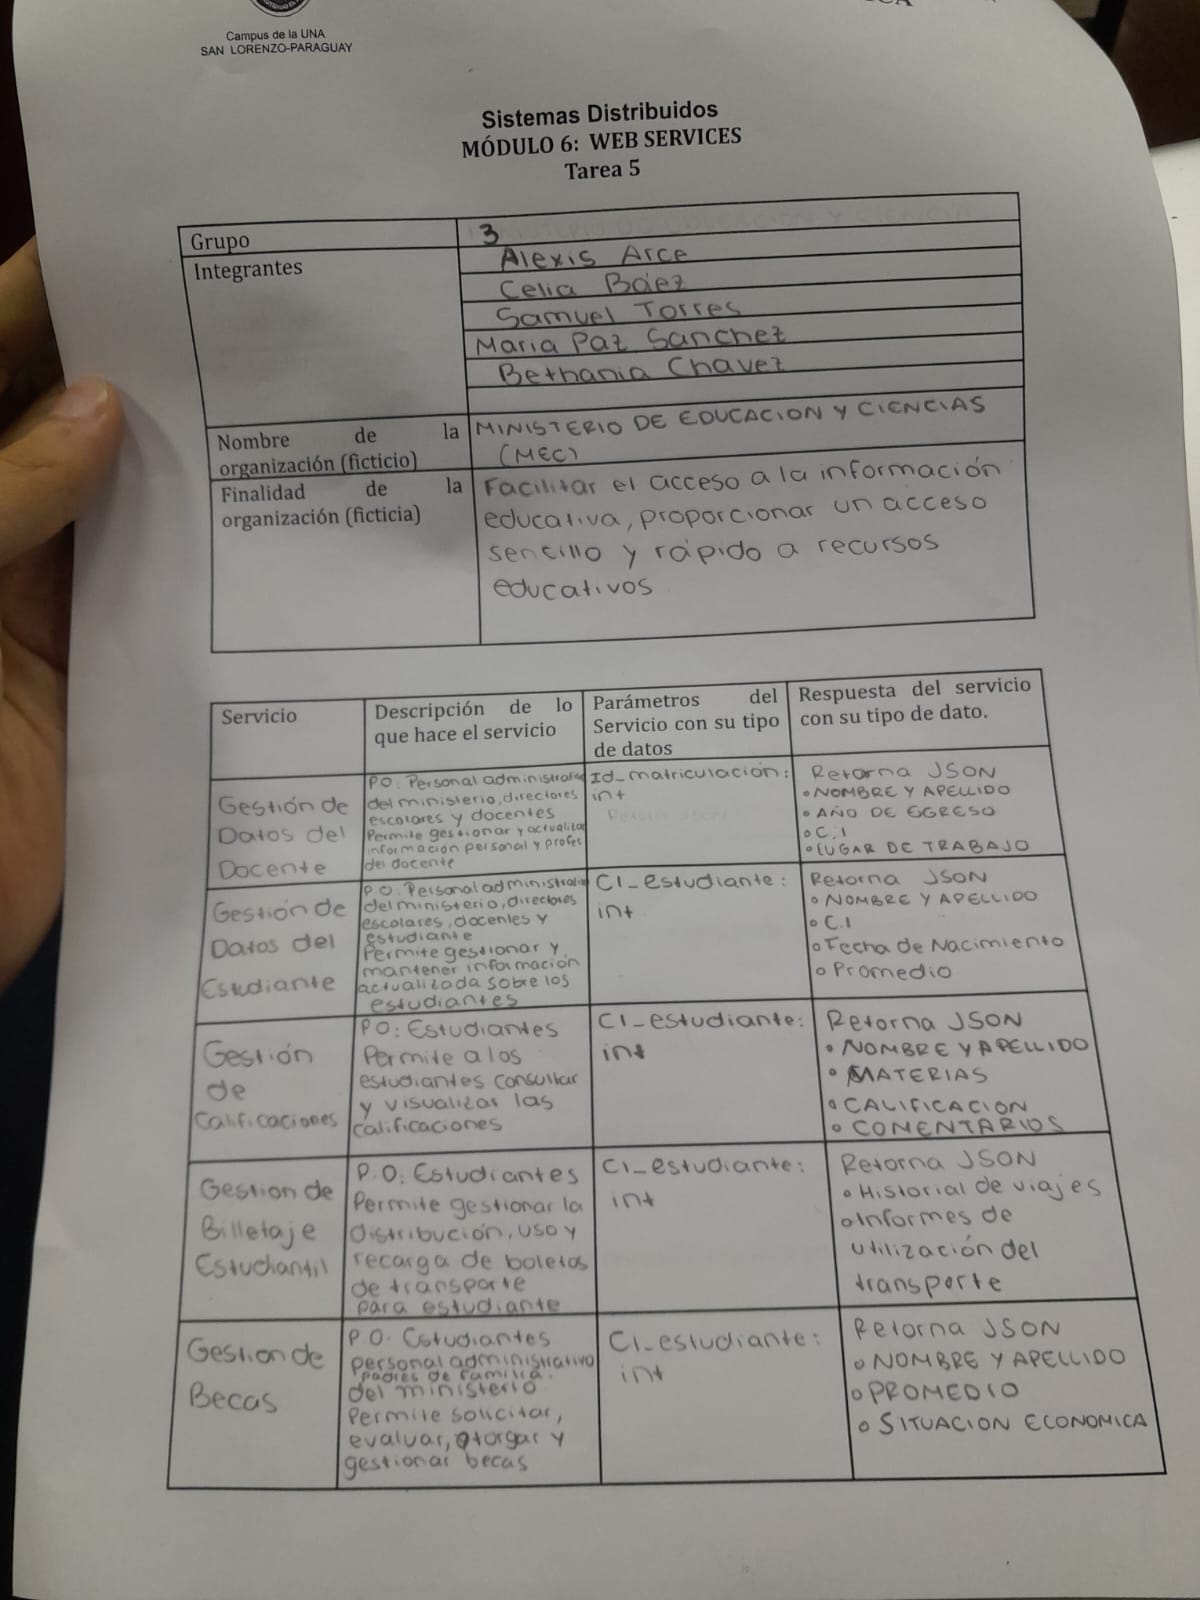 Campus de la UNA
SAN LORENZO-PARAGUAY
Sistemas Distribuidos
MÓDULO 6: WEB SERVICES
Tarea 5
Grupo
3
Integrantes
Alexis Arce
Celia Báez
Samuel Torres
Maria Paz Sanchez
Bethania Chavez
Nombre de la
organización (ficticio)
MINISTERIO DE EDUCACION Y CIENCIAS
(MEC)
Finalidad de la
organización (ficticia)
Facilitar el acceso a la información
educativa, proporcionar un acceso
sencillo y rápido a recursos
educativos
Servicio
Descripción de lo
que hace el servicio
Parámetros del
Servicio con su tipo
de datos
Respuesta del servicio
con su tipo de dato.
Gestión de
Datos del
Docente
PO: Personal administrativo
del ministerio, directores
escolares y docentes
Permite gestionar y actualizar
información personal y profes
del docente
Id_matriculación:
int
Retorna JSON
• NOMBRE Y APELLIDO
• AÑO DE EGRESO
• C.I
• LUGAR DE TRABAJO
Gestión de
Datos del
Estudiante
P.O: Personal administrativo
del ministerio, directores
escolares, docentes y
estudiante
Permite gestionar y
mantener información
actualizada sobre los
estudiantes
CI_estudiante:
int
Retorna JSON
• NOMBRE Y APELLIDO
• C.I
• Fecha de Nacimiento
• Promedio
Gestión
de
Calificaciones
PO: Estudiantes
Permite a los
estudiantes consultar
y visualizar las
calificaciones
CI_estudiante:
int
Retorna JSON
• NOMBRE Y APELLIDO
• MATERIAS
• CALIFICACION
• COMENTARIOS
Gestion de
Billetaje
Estudiantil
P.O: Estudiantes
Permite gestionar la
distribución, uso y
recarga de boletos
de transporte
para estudiante
CI_estudiante:
int
Retorna JSON
• Historial de viajes
• Informes de
utilización del
transporte
Gestion de
Becas
P.O: Estudiantes
personal administrativo
padres de familia.
del ministerio
Permite solicitar,
evaluar, otorgar y
gestionar becas
CI_estudiante:
int
Retorna JSON
• NOMBRE Y APELLIDO
• PROMEDIO
• SITUACION ECONOMICA